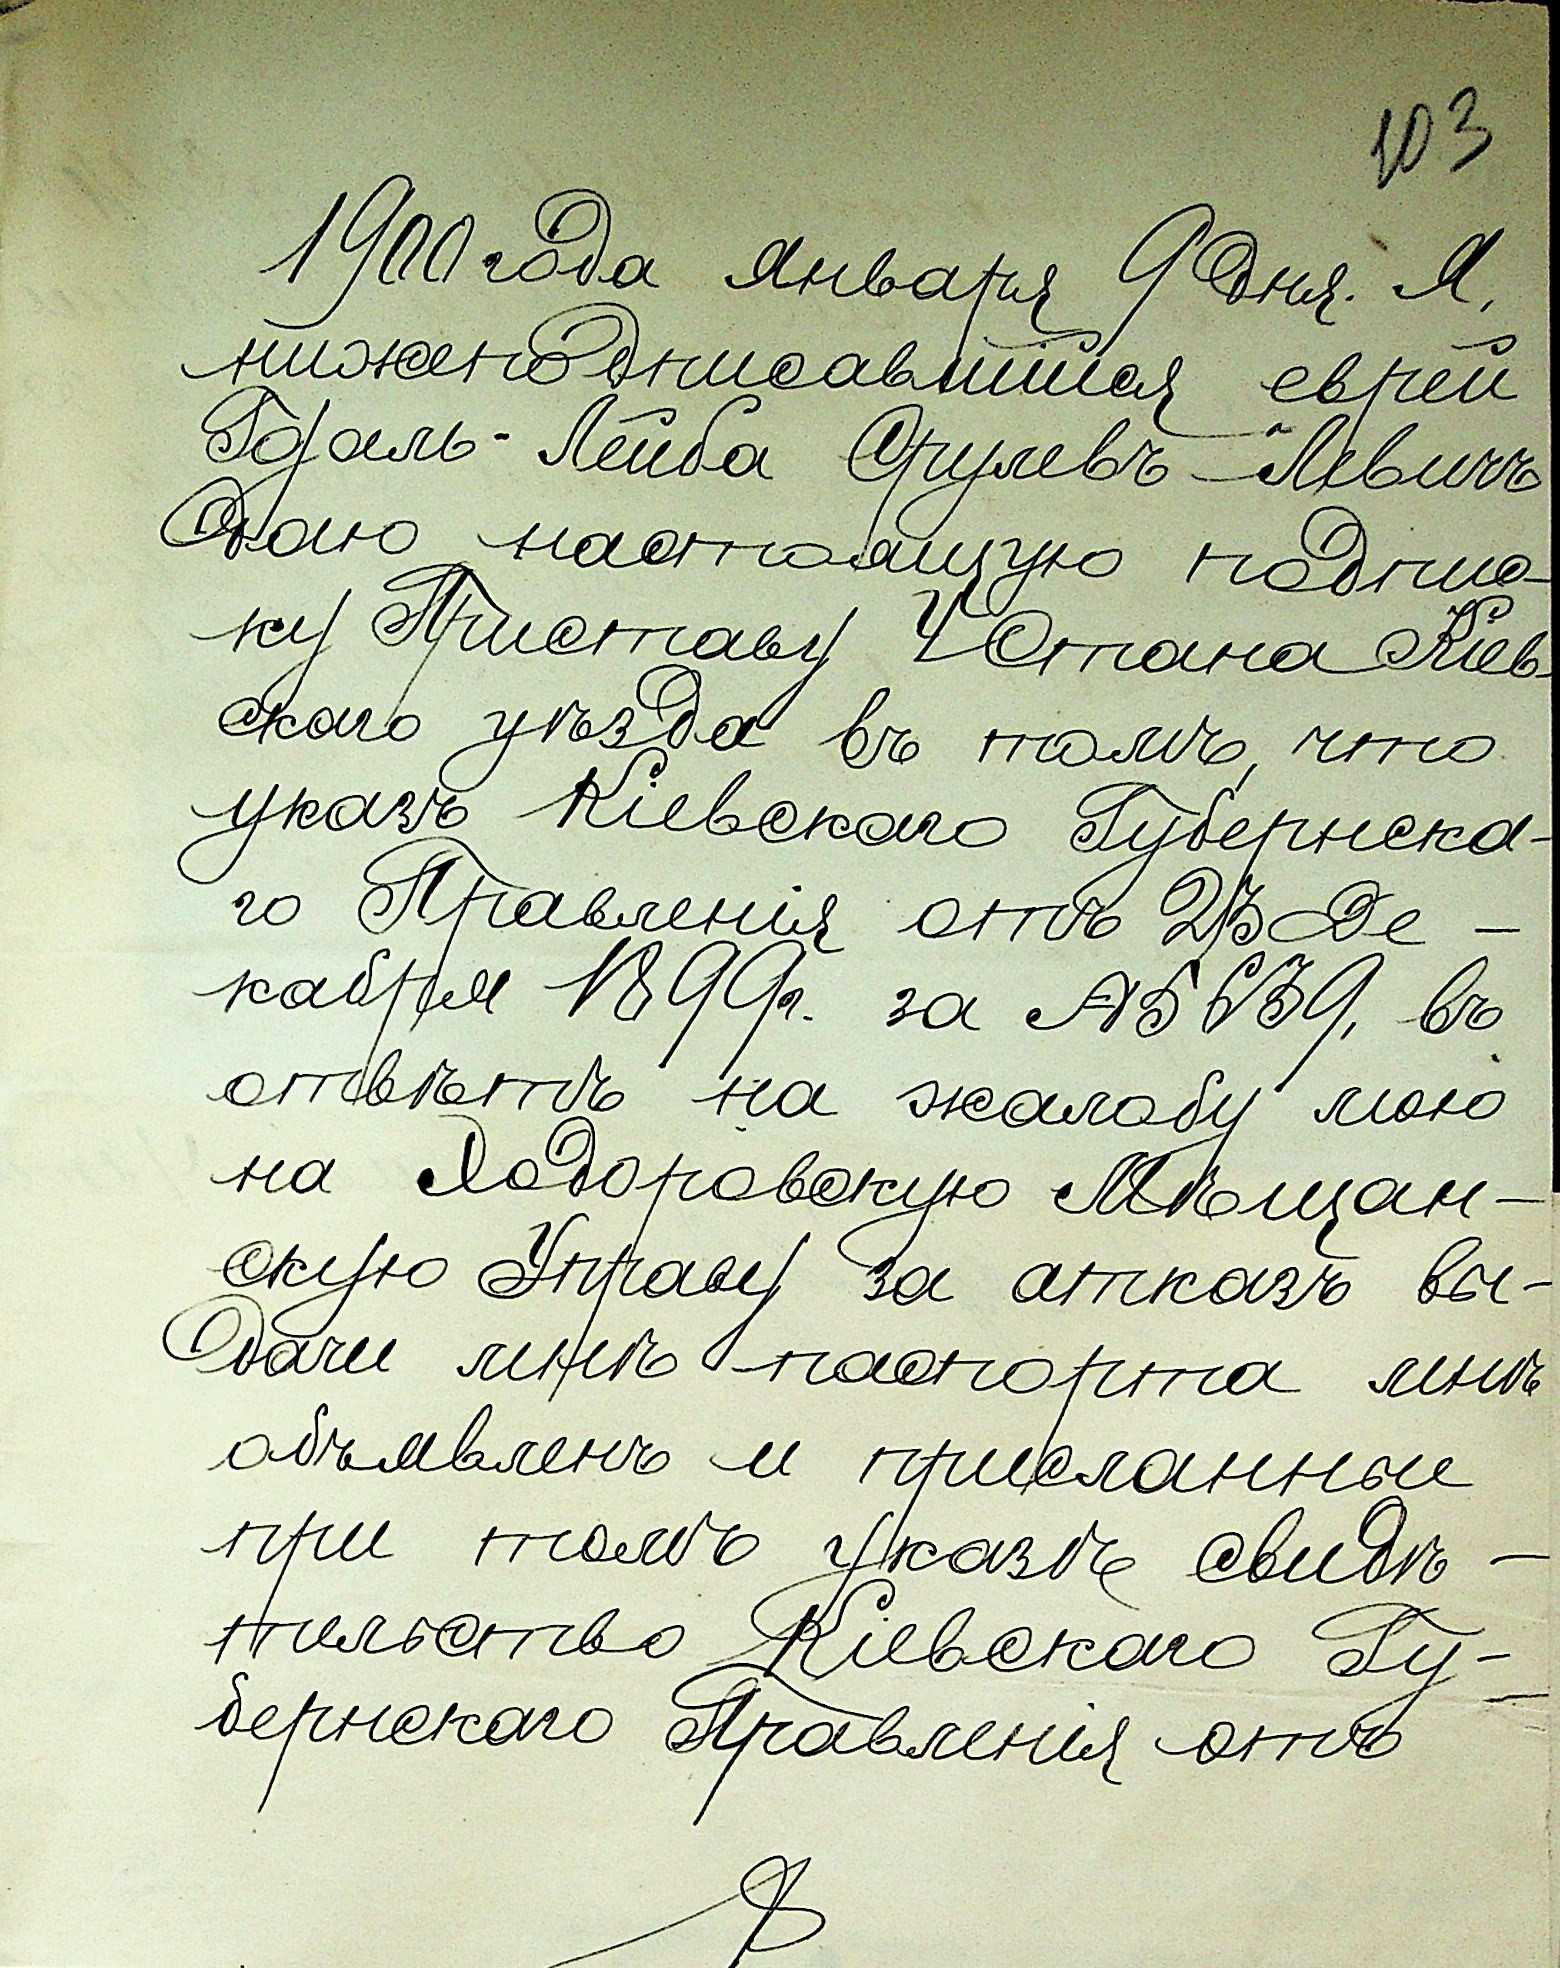 103
1900 года января 9 дня. Я,
нижеподписавшійся еврей
Срулевъ Левичъ
даю настоящую подпис-
ку Приставу Стана Кіев-
скаго уѣзда въ томъ, что
указъ Кіевскаго Губернска-
го Правленія отъ 23 Де-
кабря 1899 г. за № 5639, въ
отвѣтъ на жалобу мою
на Ходоровскую Мѣщан-
скую Управу за отказъ вы-
дачи мнѣ паспорта мнѣ
объявленъ и присланные
при томъ указѣ свидѣ-
тельство Кіевскаго Гу-
бернскаго Правленія отъ